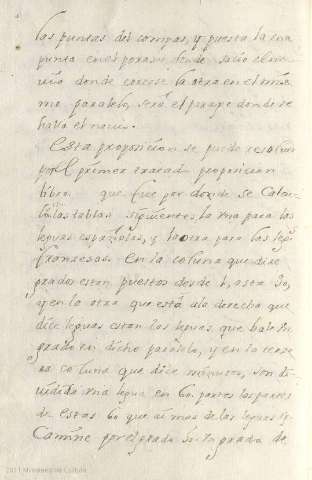 las puntas del compas, y puesta la una
punta en el par donde salio el na-
uio donde cayese la otra en el mis-
mo paralelo, sera el paraje donde se
halla el nauio.
Esta proposicion se puede resoluer
por el primer proposicion
libro que fue por donde se Calcu-
laron las tablas siguientes la vna para las
leguas españolas, y la otra para las leg
francesas. En la coluna que dize
grados estan puestos desde 1, asta 90,
y en la otra que está ala derecha que
dice leguas estan las leguas, que bale un
grado en dicho paralelo, y en la terse-
ra coluna que dize minutos, son di-
uidida vna legua en 60 partes las partes
de estas 60 que ai mas de las leguas q
Camine por el grado si un grado de
2011 Ministerio de Cultura